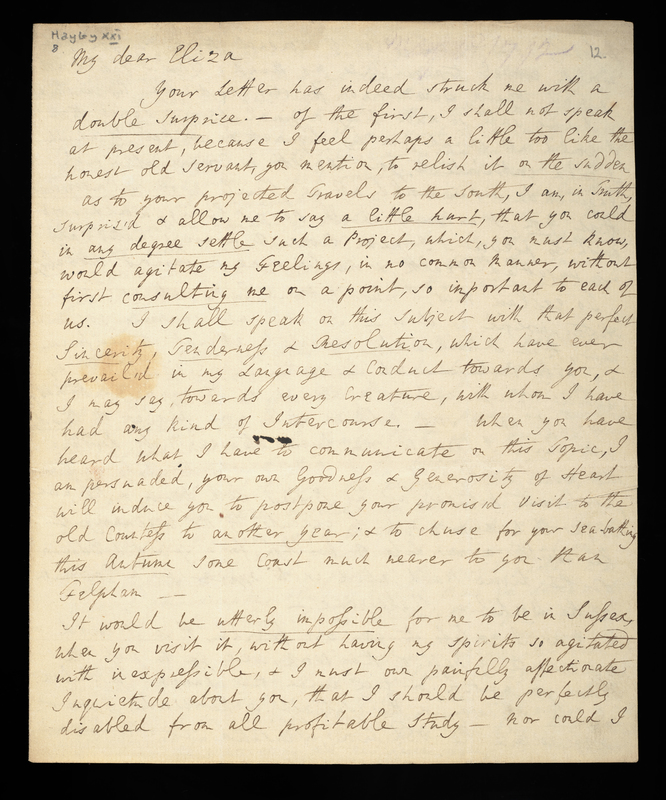 Hayley XXI
8
12.
My dear Eliza
Your Letter has indeed struck me with a
double surprise. — of the first, I shall not speak
at present, because I feel perhaps a little too like the
honest old servant, you mention, to relish it on the sudden
as to your projected Travels to the South, I am, in Truth,
surpris'd & allow me to say a little hurt, that you could
in any degree settle such a Project, which, you must know,
would agitate my Feelings, in no common Manner, without
first consulting me on a point, so important to each of
us. I shall speak on this subject with that perfect
Sincerity, Tenderness & Resolution, which have ever
prevail'd in my Language & Conduct towards you, &
I may say, towards every Creature, with whom I have
had any kind of Intercourse. — when you have
heard what I have to communicate on this Topic, I
am persuaded, your own Goodness & Generosity of Heart
will induce you to postpone your promis'd visit to the
old Countess to another year; & to chuse for your sea-bathing
this Autumn some Coast much nearer to you than
Felpham —
It would be utterly impossible for me to be in Sussex,
when you visit it, without having my spirits so agitated
with inexpressible, & I must own painfully affectionate
Inquietude about you, that I should be perfectly
disabled from all profitable study — nor could I